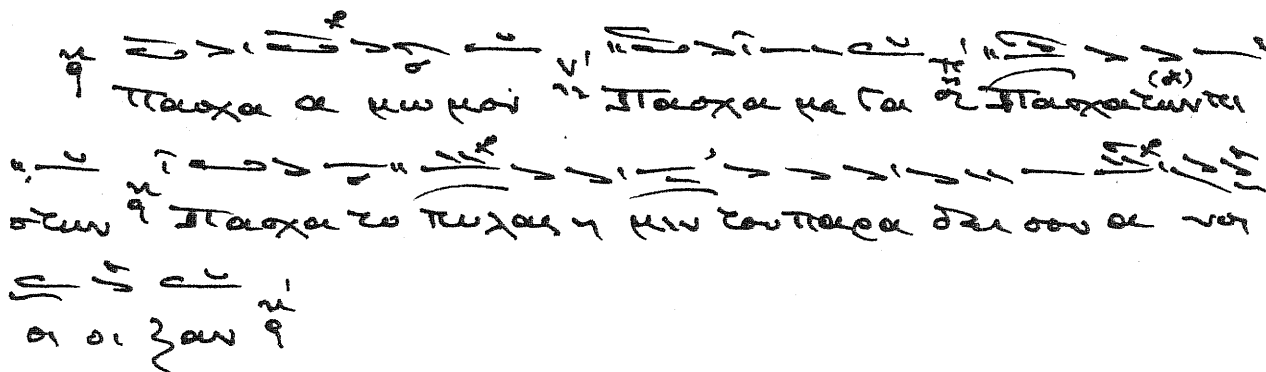 Πασχα α μω μον Πασχα με γα Πασχα των πι
στων Πασχα το πυλας η μιν του Παρα δει σου α νοι
οι οι ξαν